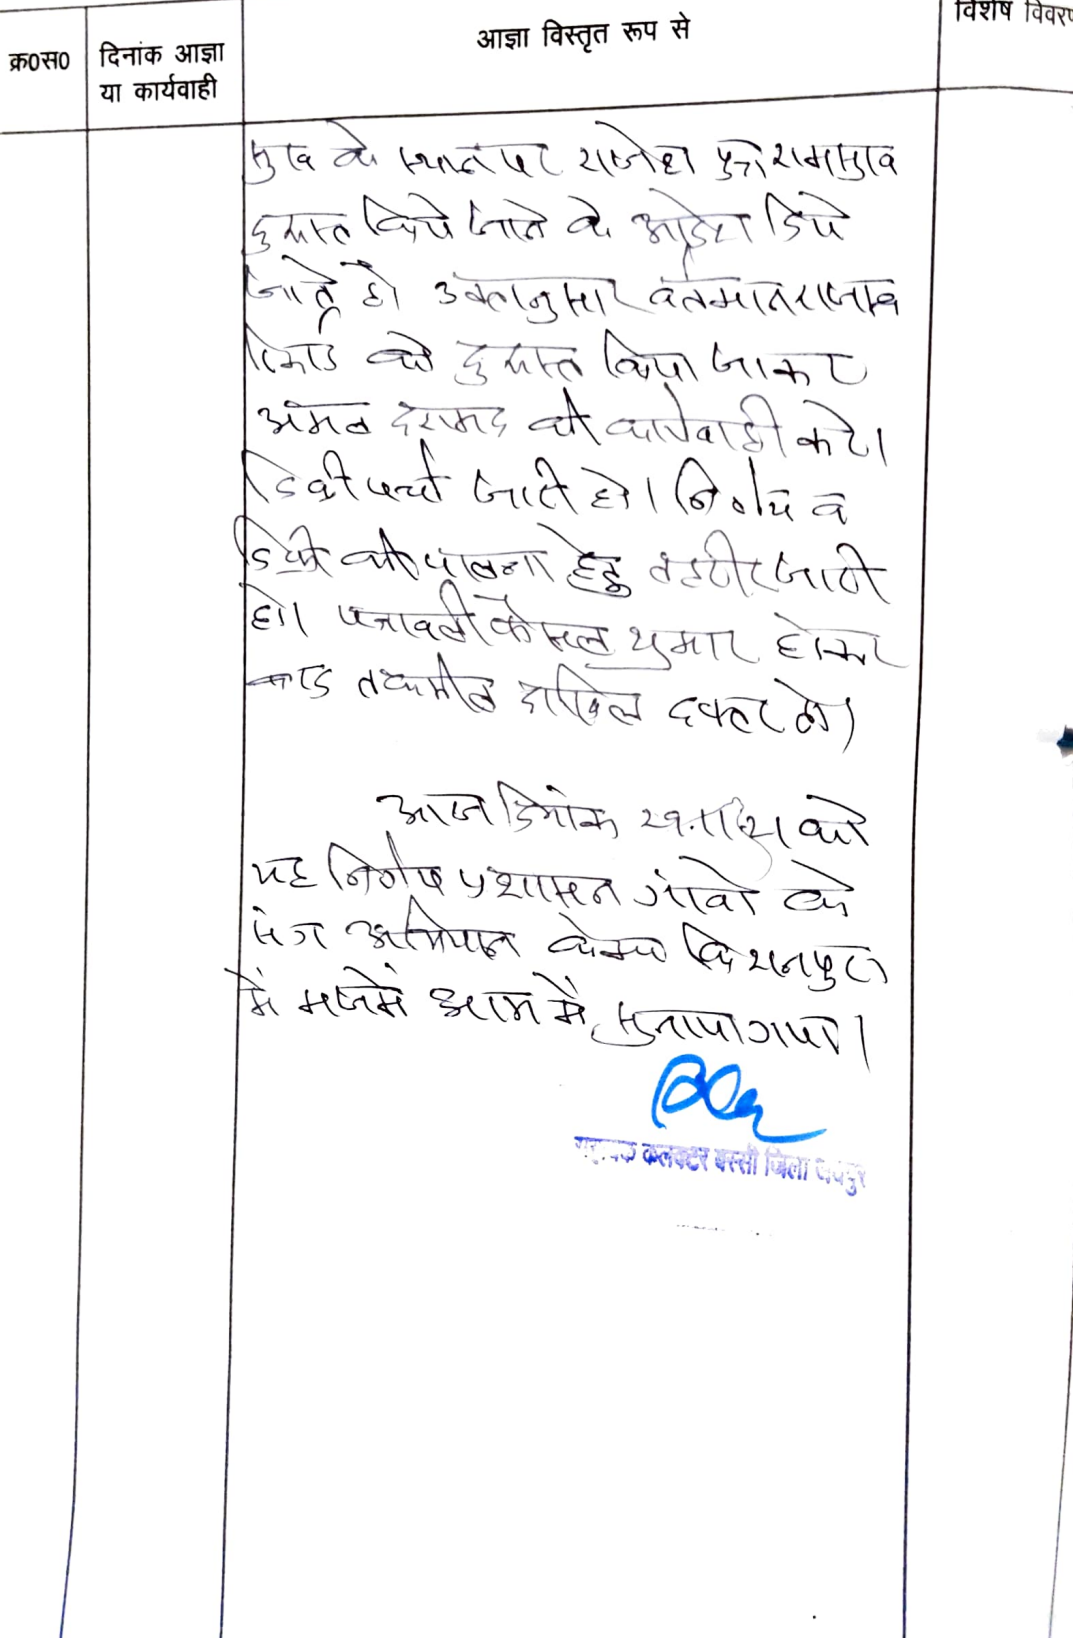 क्र0स0
दिनांक आज्ञा
या कार्यवाही
आज्ञा विस्तृत रूप से
विशेष विवरण
सुख के स्थान पर राजेश पुत्र रामसुख
दुरूस्त किये जाने के आदेश दिये
जाते है। उक्तानुसार वर्तमान राजस्व
रिकार्ड को दुरूस्त किया जाकर
अमल दरामद की कार्यवाही करे।
डिक्री पर्चा जारी हो। निर्णय व
डिक्री की पालना हेतु तहरीर जारी
हो। पत्रावली फैसल शुमार होकर
बाद तकमील दाखिल दफ्तर हो।
आज दिनांक को
यह निर्णय प्रशासन गांवो के
संग अभियान केम्प किशनपुरा
में मजमे आम में सुनाया गया।
सहायक कलक्टर बस्सी जिला जयपुर